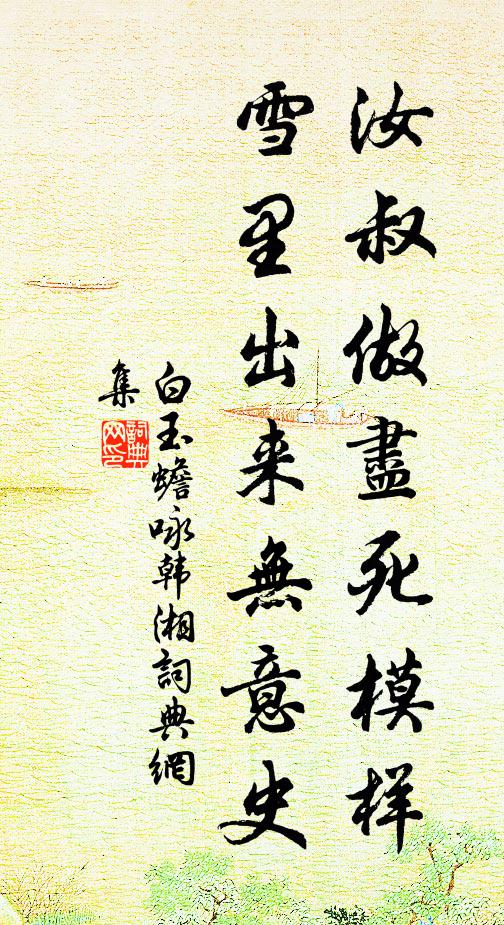 汝叔做盡死模样
雪里出来無意史
白玉蟾咏韩湘詞典網
集
詞典網印